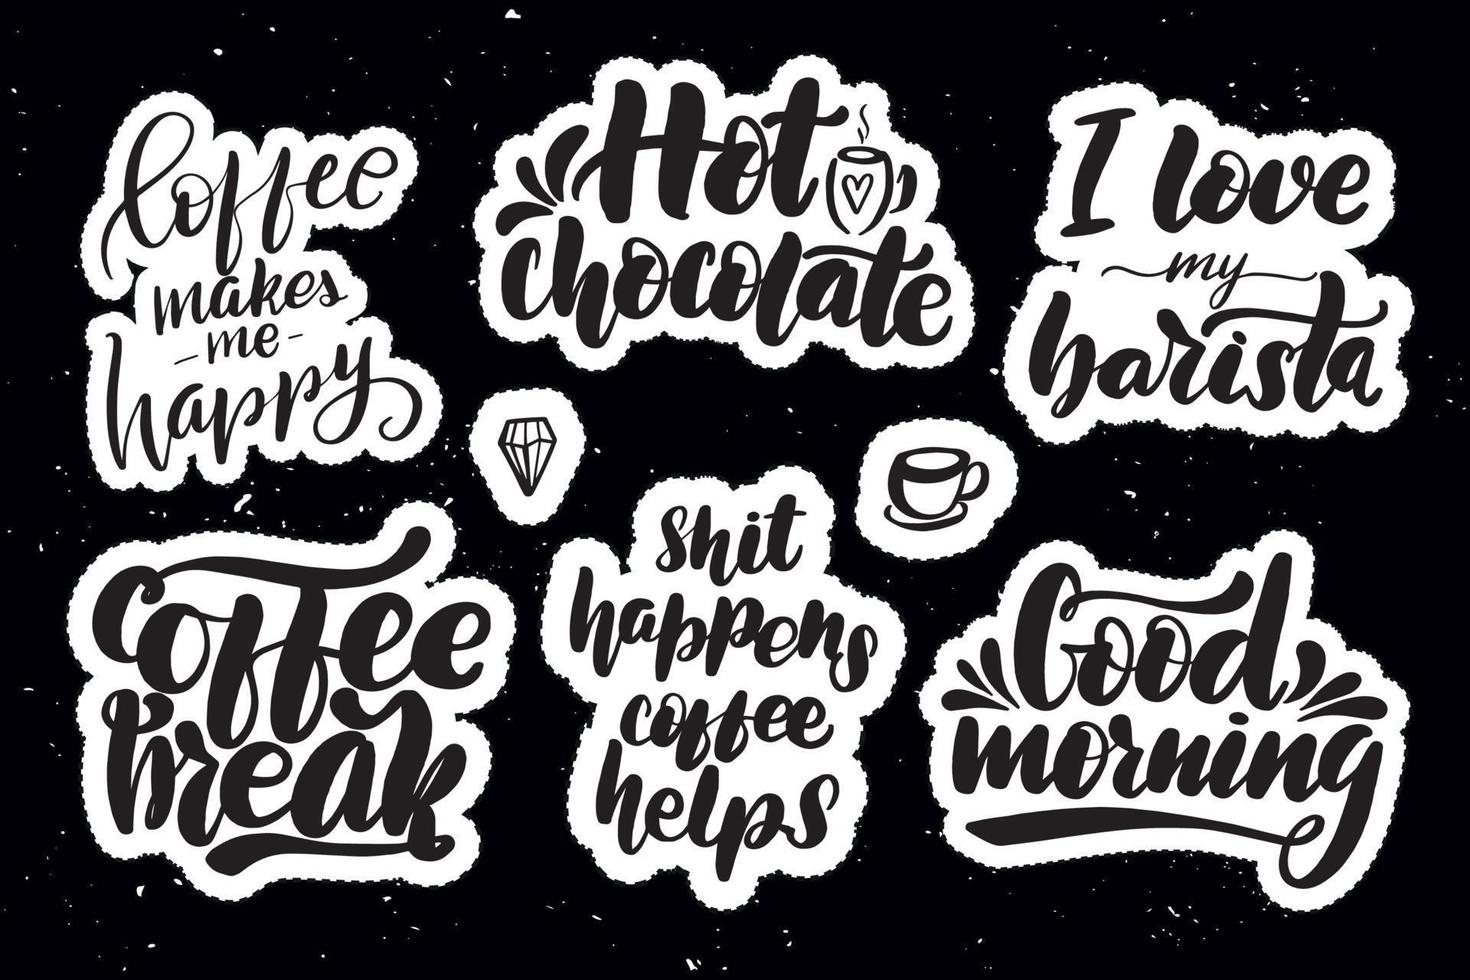 Coffee
makes
-me-
happy
Hot
chocolate
I love
my
barista
Coffee
break
shit
happens
coffee
helps
Good
morning